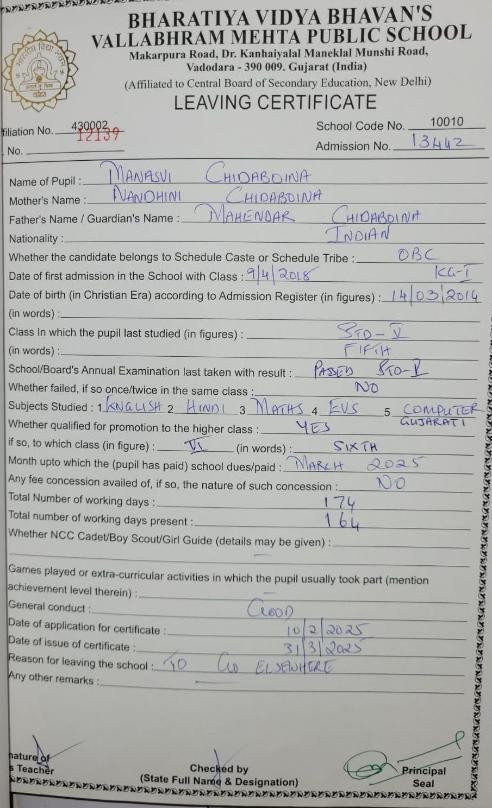 BHARATIYA VIDYA BHAVAN'S
VALLABHRAM MEHTA PUBLIC SCHOOL
Makarpura Road, Dr. Kanhaiyalal Maneklal Munshi Road,
Vadodara - 390 009. Gujarat (India)
(Affiliated to Central Board of Secondary Education, New Delhi)
LEAVING CERTIFICATE
filiation No. 430002 School Code No. 10010
. No. 12139 Admission No. 13442
Name of Pupil : MANASVI CHIDABOINA
Mother's Name : NANDHINI CHIDABOINA
Father's Name / Guardian's Name : MAHENDAR CHIDABOINA
Nationality : INDIAN
Whether the candidate belongs to Schedule Caste or Schedule Tribe : OBC
Date of first admission in the School with Class : 9/4/2018 KG-I
Date of birth (in Christian Era) according to Admission Register (in figures) : 14/03/2014
(in words) :
Class In which the pupil last studied (in figures) : STD-V
(in words) : FIFTH
School/Board's Annual Examination last taken with result : PASSED STD-V
Whether failed, if so once/twice in the same class : NO
Subjects Studied : 1 ENGLISH 2 HINDI 3 MATHS 4 EVS 5 COMPUTER
GUJARATI
Whether qualified for promotion to the higher class : YES
if so, to which class (in figure) : VI (in words) : SIXTH
Month upto which the (pupil has paid) school dues/paid : MARCH 2025
Any fee concession availed of, if so, the nature of such concession : NO
Total Number of working days : 174
Total number of working days present : 164
Whether NCC Cadet/Boy Scout/Girl Guide (details may be given) : —
Games played or extra-curricular activities in which the pupil usually took part (mention
achievement level therein) : —
General conduct : GOOD
Date of application for certificate : 10/2/2025
Date of issue of certificate : 31/3/2025
Reason for leaving the school : TO GO ELSEWHERE
Any other remarks : —
nature of Checked by Principal
s Teacher (State Full Name & Designation) Seal